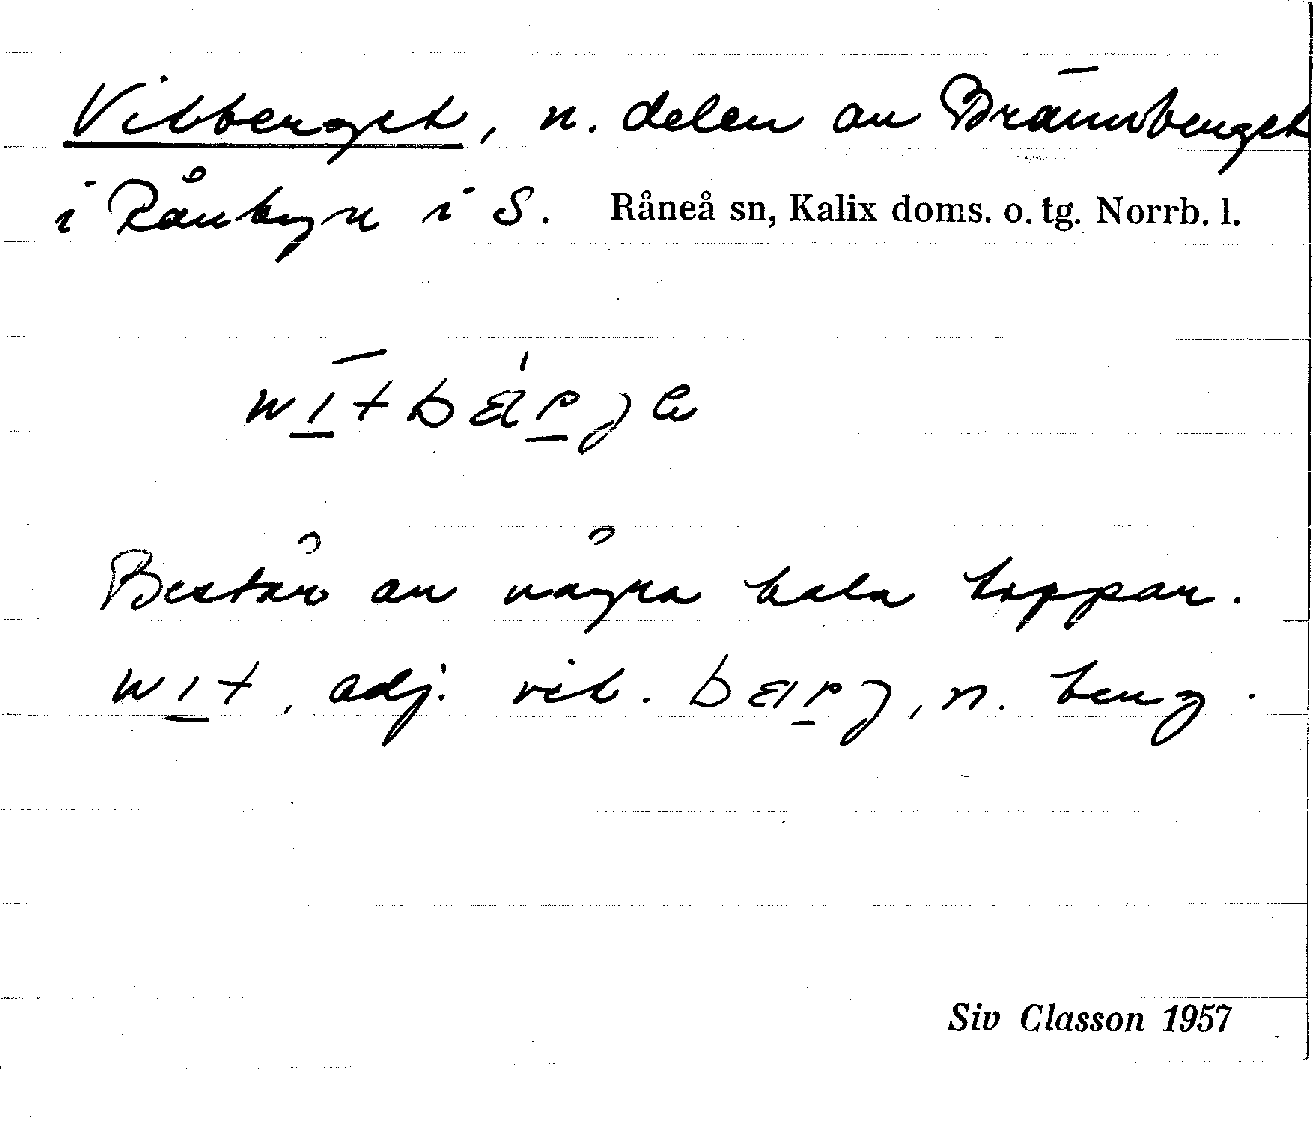 Vitberget, n. delen av Brännberget
i Rånbyn i S. Råneå sn, Kalix doms. o. tg. Norrb. l.
wıtbärje
Består av några kala toppar.
wıt, adj. vit. bärj, n. berg.
Siv Classon 1957